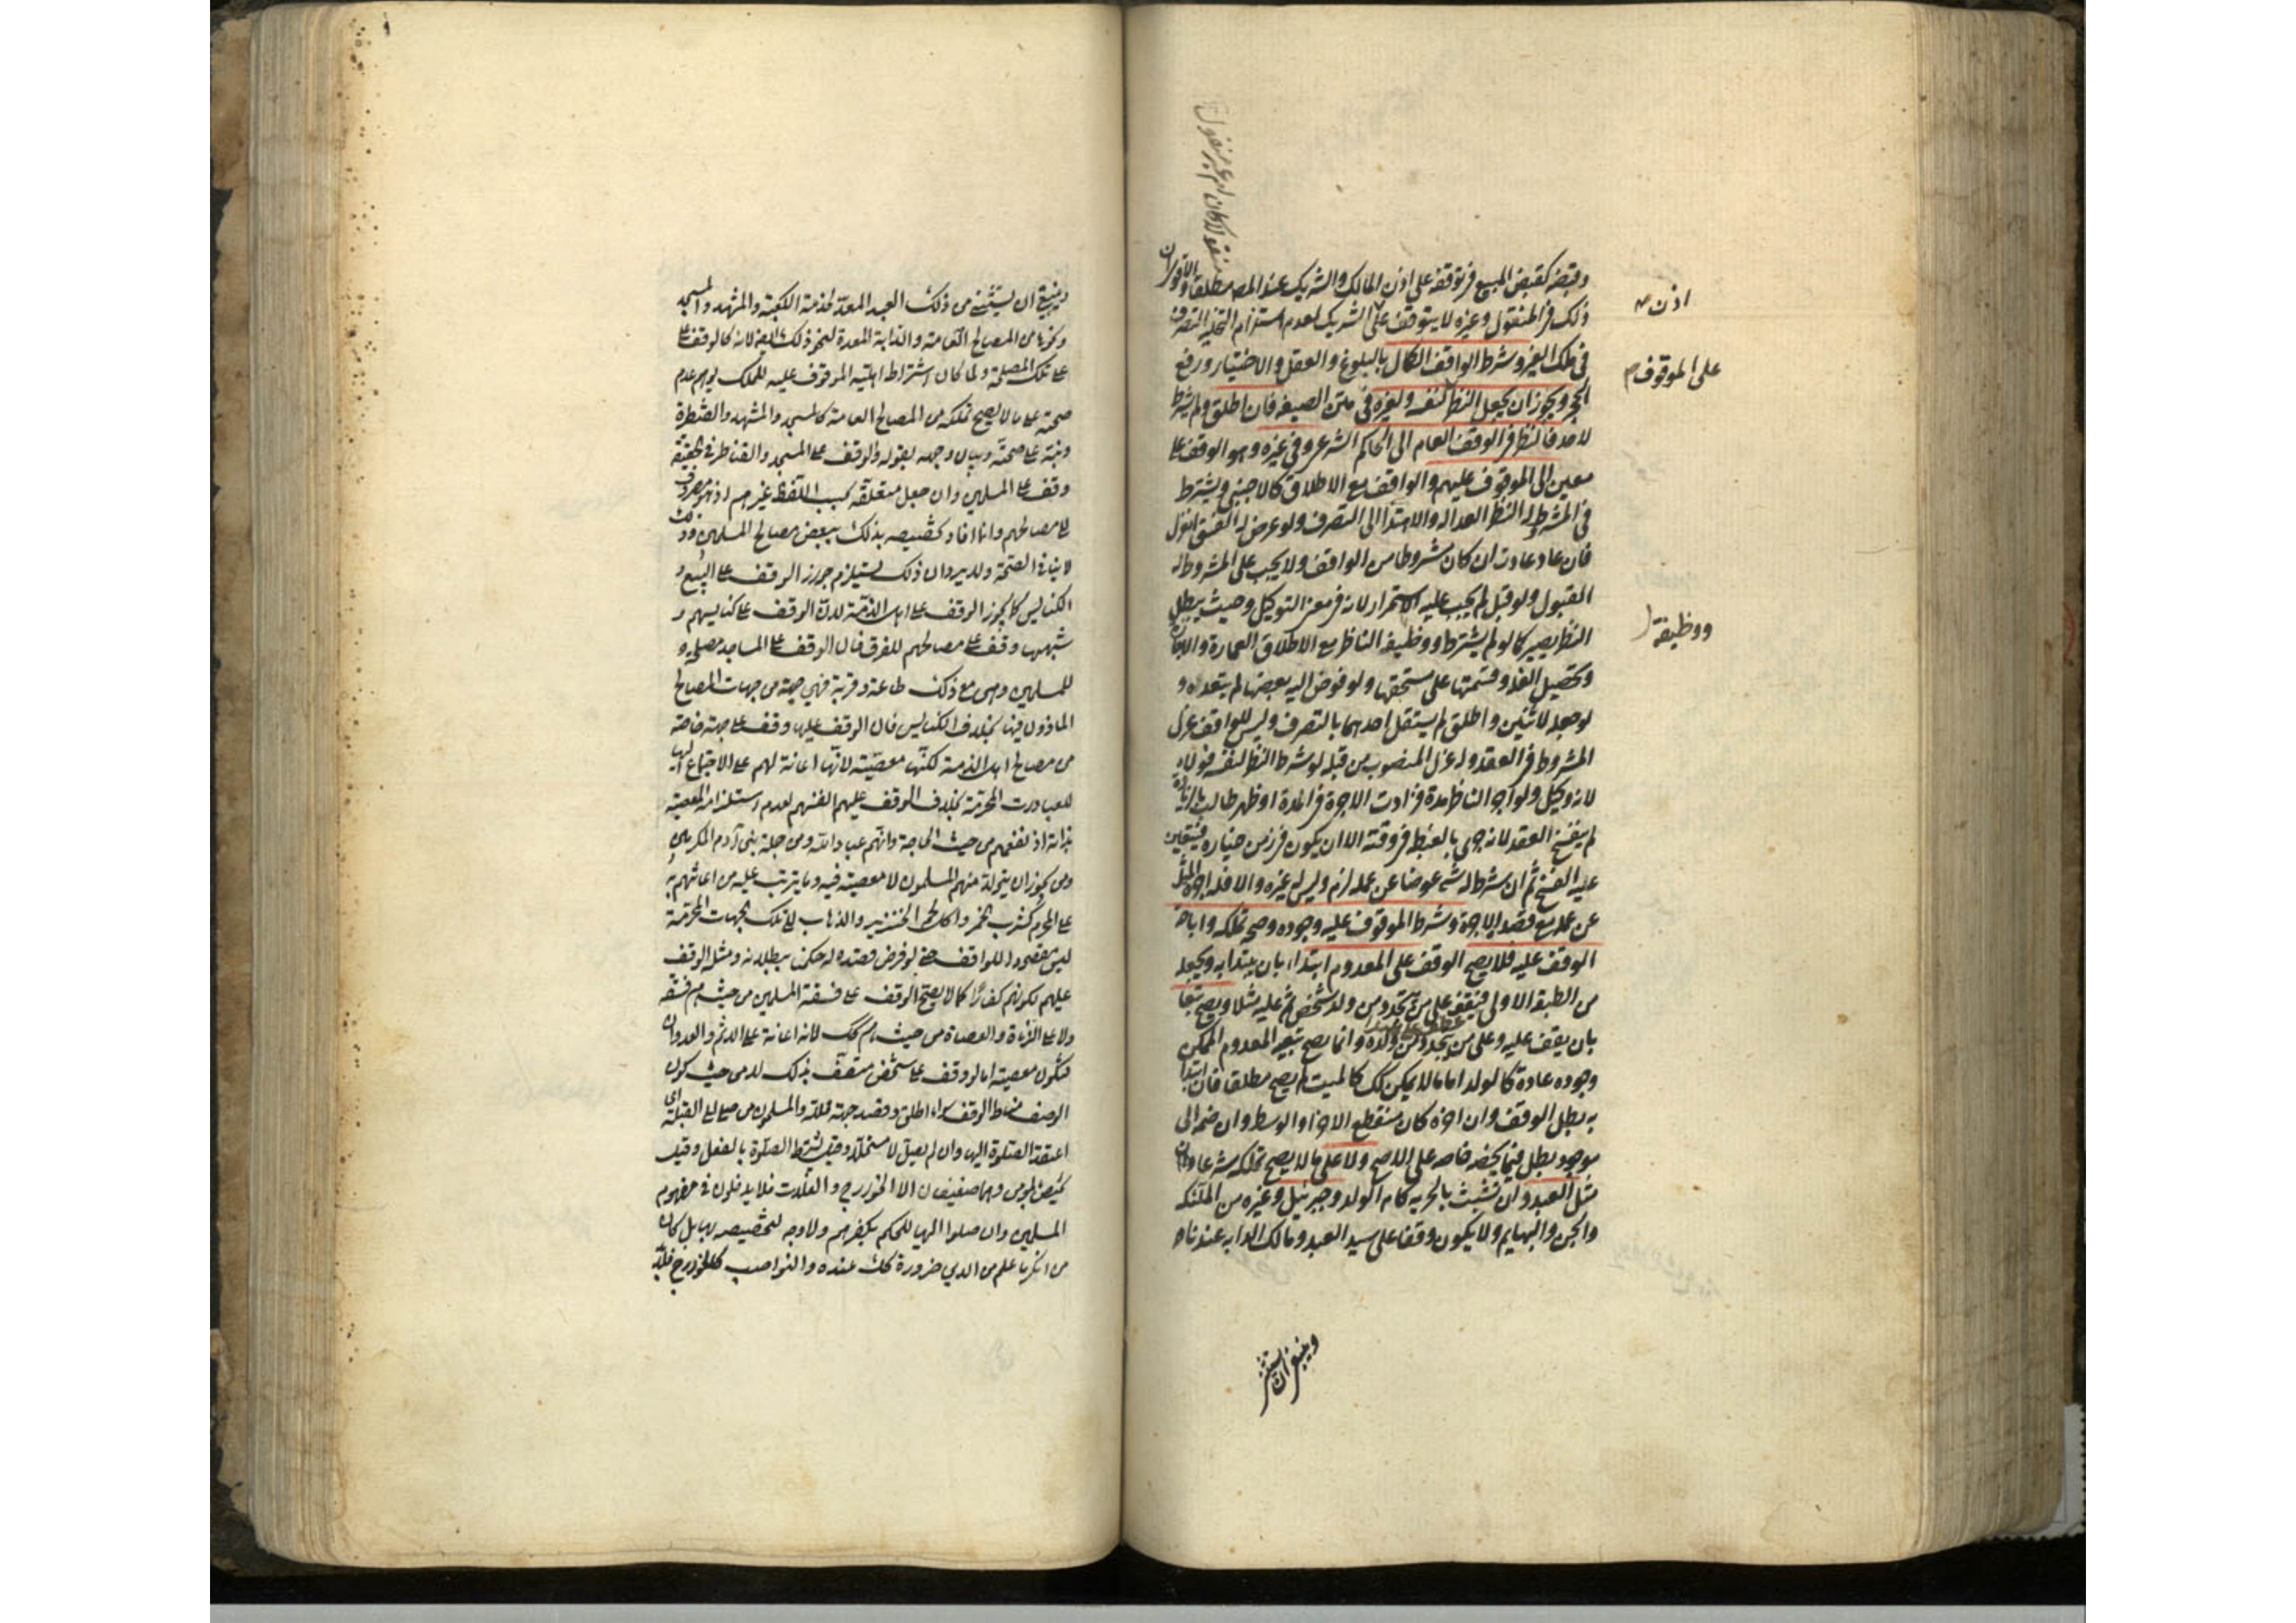 وقبضه كقبض المبيع في توقفه على اذن المالك والشريك عند المص مطلقا والاقوى ان
منقولا كان ام غير منقول
ذلك في المنقول وغيره لا يتوقف على الشريك لعدم استلزام التخلية التصرف
اذن
في ملك الغير وشرط الواقف الكمال بالبلوغ والعقل والاختيار ورفع
على الموقوف
الحجر ويجوز ان يجعل النظر لنفسه ولغيره في متن الصيغة فان اطلق ولم يشرط
لاحد فالنظر في الوقف العام الى الحاكم الشرعي وفي غيره وهو الوقف على
معين الى الموقوف عليهم والواقف مع الاطلاق كالاجنبي ويشترط
في المشروط له النظر العدالة والاهتداء الى التصرف ولو عرض له الفسق انعزل
فان عاد عادت ان كان مشروطا من الواقف ولا يجب على المشروط له
القبول ولو قبل لم يجب عليه الاستمرار لانه في معنى التوكيل وحيث يبطل
النظر يصير كما لو لم يشترط ووظيفة الناظر مع الاطلاق العمارة والاجارة
ووظيفة
وتحصيل الغلة وقسمتها على مستحقها ولو فوض اليه بعضها لم يتعده و
لو جعله لاثنين واطلق لم يستقل احدهما بالتصرف وليس للواقف عزل
المشروط في العقد وله عزل المنصوب من قبله لو شرط النظر لنفسه فولاه
لانه وكيل ولو آجر الناظر مدة فزادت الاجرة في المدة او ظهر طالب بالزيادة
لم ينفسخ العقد لانه جرى بالغبطة في وقته الا ان يكون في زمن خياره فيتعين
عليه الفسخ ثم ان شرط له شيء عوضا عن عمله لزم وليس له غيره والا فله اجرة المثل
عن عمله مع قصد الاجرة وشرط الموقوف عليه وجوده وصحة تملكه واباحة
الوقف عليه فلا يصح الوقف على المعدوم ابتداء بان يبتدا به ويجعل
من الطبقة الاولى فيوقف على من يتجدد من ولد شخص ثم عليه مثلا ويصح تبعا
بان يقف عليه وعلى من يتجدد من ولده وانما يصح تبعية المعدوم الممكن
وجوده عادة كالولد اما ما لا يمكن كك كالميت لم يصح مطلقا فان ابتدا
به بطل الوقف وان اخره كان منقطع الاخر او الوسط وان ضمه الى
موجود بطل فيما يخصه خاصة على الاصح ولا على ما لا يصح تملكه شرعا وان
مثل العبد وان تشبث بالحرية كام الولد وجبرئيل وغيره من الملئكة
والجن والبهايم ولا يكون وقفا على سيد العبد ومالك الدابة عندنا
وينبغي ان يستثنى
وينبغي ان يستثنى من ذلك العبد المعد لخدمة الكعبة والمشهد والمسجد
ونحوها من المصالح العامة والدابة المعدة لنحو ذلك ايضا لانه كالوقف على
تلك المصلحة ولما كان اشتراط اهلية الموقوف عليه للملك يوهم عدم
صحته على ما لا يصح تملكه من المصالح العامة كالمسجد والمشهد والقنطرة
ونبه على صحته وبيان وجهه بقوله والوقف على المسجد والقناطر في الحقيقة
وقف على المسلمين وان جعل متعلقه بحسب اللفظ غيرهم اذ هو مصروف
الى مصالحهم وانما افاد تخصيصه بذلك ببعض مصالح المسلمين وذلك
لا ينافي الصحة ولا يرد ان ذلك يستلزم جواز الوقف على البيع و
الكنايس كما يجوز الوقف على اهل الذمة لان الوقف على كنايسهم و
شبهها وقف على مصالحهم للفرق فان الوقف على المساجد مصلحة
للمسلمين وهي مع ذلك طاعة وقربة فهي جهة من جهات المصالح
الماذون فيها بخلاف الكنايس فان الوقف عليها وقف على جهة خاصة
من مصالح اهل الذمة لكنها معصية لانها اعانة لهم على الاجتماع اليها
للعبادات المحرمة بخلاف الوقف عليهم انفسهم لعدم استلزامه المعصية
بذاته اذ نفعهم من حيث الحاجة وانهم عباد الله ومن جملة بني آدم المكرمين
ومن يجوز ان يتولد منهم المسلمون لا معصية فيه وما يترتب عليه من اعانتهم به
على المحرم كشرب الخمر واكل لحم الخنزير والذهاب الى تلك الجهات المحرمة
ليس مقصودا للواقف حتى لو فرض قصده له حكمنا ببطلانه ومثله الوقف
عليهم لكونهم كفارا كما لا يصح الوقف على فسقة المسلمين من حيث هم فسقة
ولا على الزناة والعصاة من حيث هم كك لانه اعانة على الاثم والعدوان
فيكون معصية اما لو وقف على شخص متصف بذلك لا من حيث كون
الوصف مناط الوقف سواء اطلق او قصد جهة محللة والمسلمون من صلى الى القبلة اي
اعتقد الصلوة اليها وان لم يصل لا مستحلا وقيل يشترط الصلوة بالفعل وقيل
يختص بالمؤمن وهما ضعيفان الا الخوارج والغلاة فلا يدخلون في مفهوم
المسلمين وان صلوا اليها للحكم بكفرهم ولا وجه لتخصيصه بهما بل كل
من انكر ما علم من الدين ضرورة كك عنده والنواصب كالخوارج فلا بد